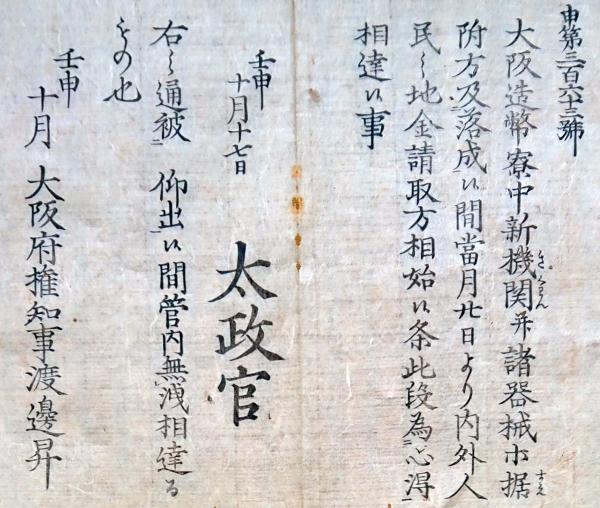 申第三百六十三號
大阪造幣寮中新機関并諸器械等据
附方及落成候間當月廿日より内外人
民之地金請取方相始候条此段為心得
相達候事
壬申
十月十七日
太政官
右之通被仰出候間管内無洩相達る
もの也
壬申
十月 大阪府権知事渡邊昇